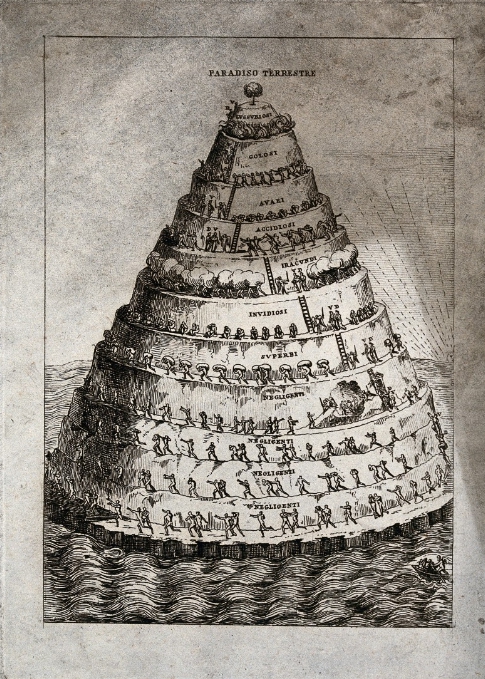 PARADISO TERRESTRE
LUSSURIOSI
GOLOSI
AVARI
DV
ACCIDIOSI
IRACUNDI
INVIDIOSI
VD
SUPERBI
NEGLIGENTI
NEGLIGENTI
NEGLIGENTI
NEGLIGENTI